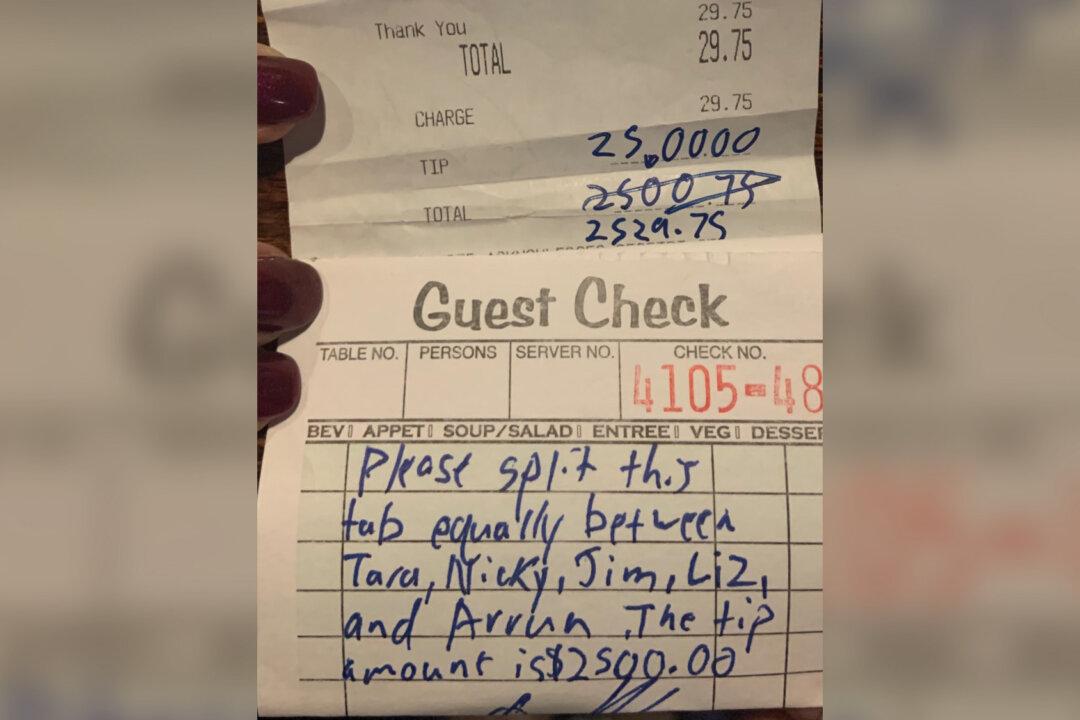 29.75
Thank You
TOTAL 29.75
CHARGE 29.75
TIP 25.0000
2500.75
TOTAL 2529.75
Guest Check
TABLE NO. PERSONS SERVER NO. CHECK NO.
4105-48
BEV APPET SOUP/SALAD ENTREE VEG DESSER
Please split this
tab equally between
Tara, Nicky, Jim, Liz,
and Arrun. The tip
amount is $2500.00